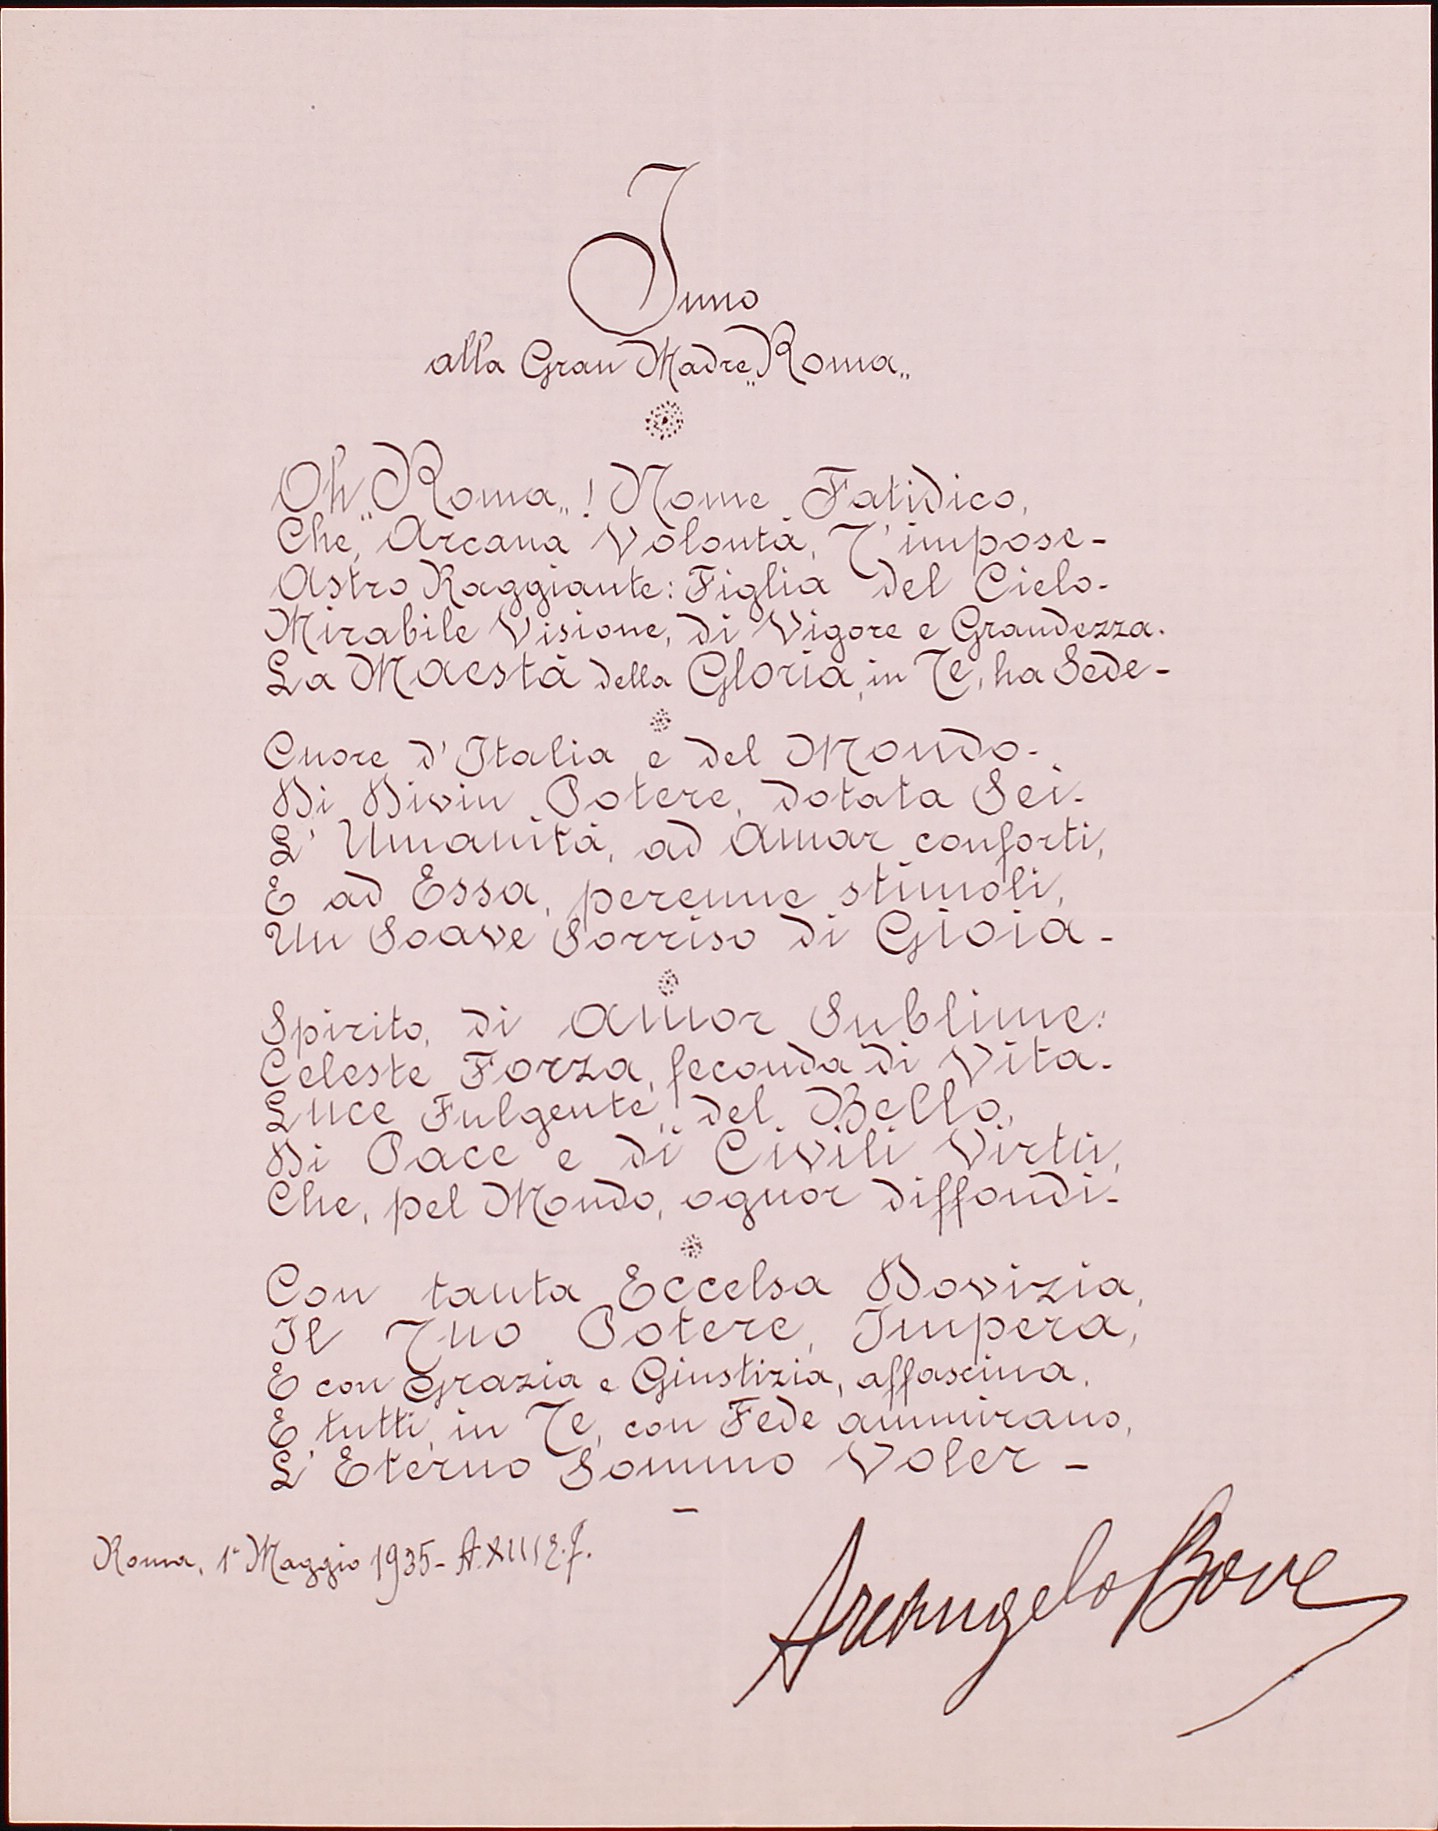 Inno
alla Gran Madre „Roma„
Oh „Roma„! Nome Fatidico,
Che, Arcana Volontà, T'impose-
Astro Raggiante: Figlia del Cielo-
Mirabile Visione, di Vigore e Grandezza.
La Maestà della Gloria, in Te, ha Sede-
Cuore d'Italia e del Mondo-
Di Divin Potere, dotata Sei-
L'Umanità, ad Amar conforti,
E ad Essa, perenne stimoli,
Un Soave Sorriso di Gioia-
Spirito, di Amor Sublime:
Celeste Forza, feconda di Vita-
Luce Fulgente, del Bello,
Di Pace e di Civili Virtù,
Che, pel Mondo, ognor diffondi-
Con tanta Eccelsa Dovizia,
Il Tuo Potere, Impera,
E con Grazia e Giustizia, affascina.
E tutti, in Te, con Fede ammirano,
L'Eterno Sommo Voler-
Roma, 1° Maggio 1935-A.XIII E.f.
Arcangelo Bove